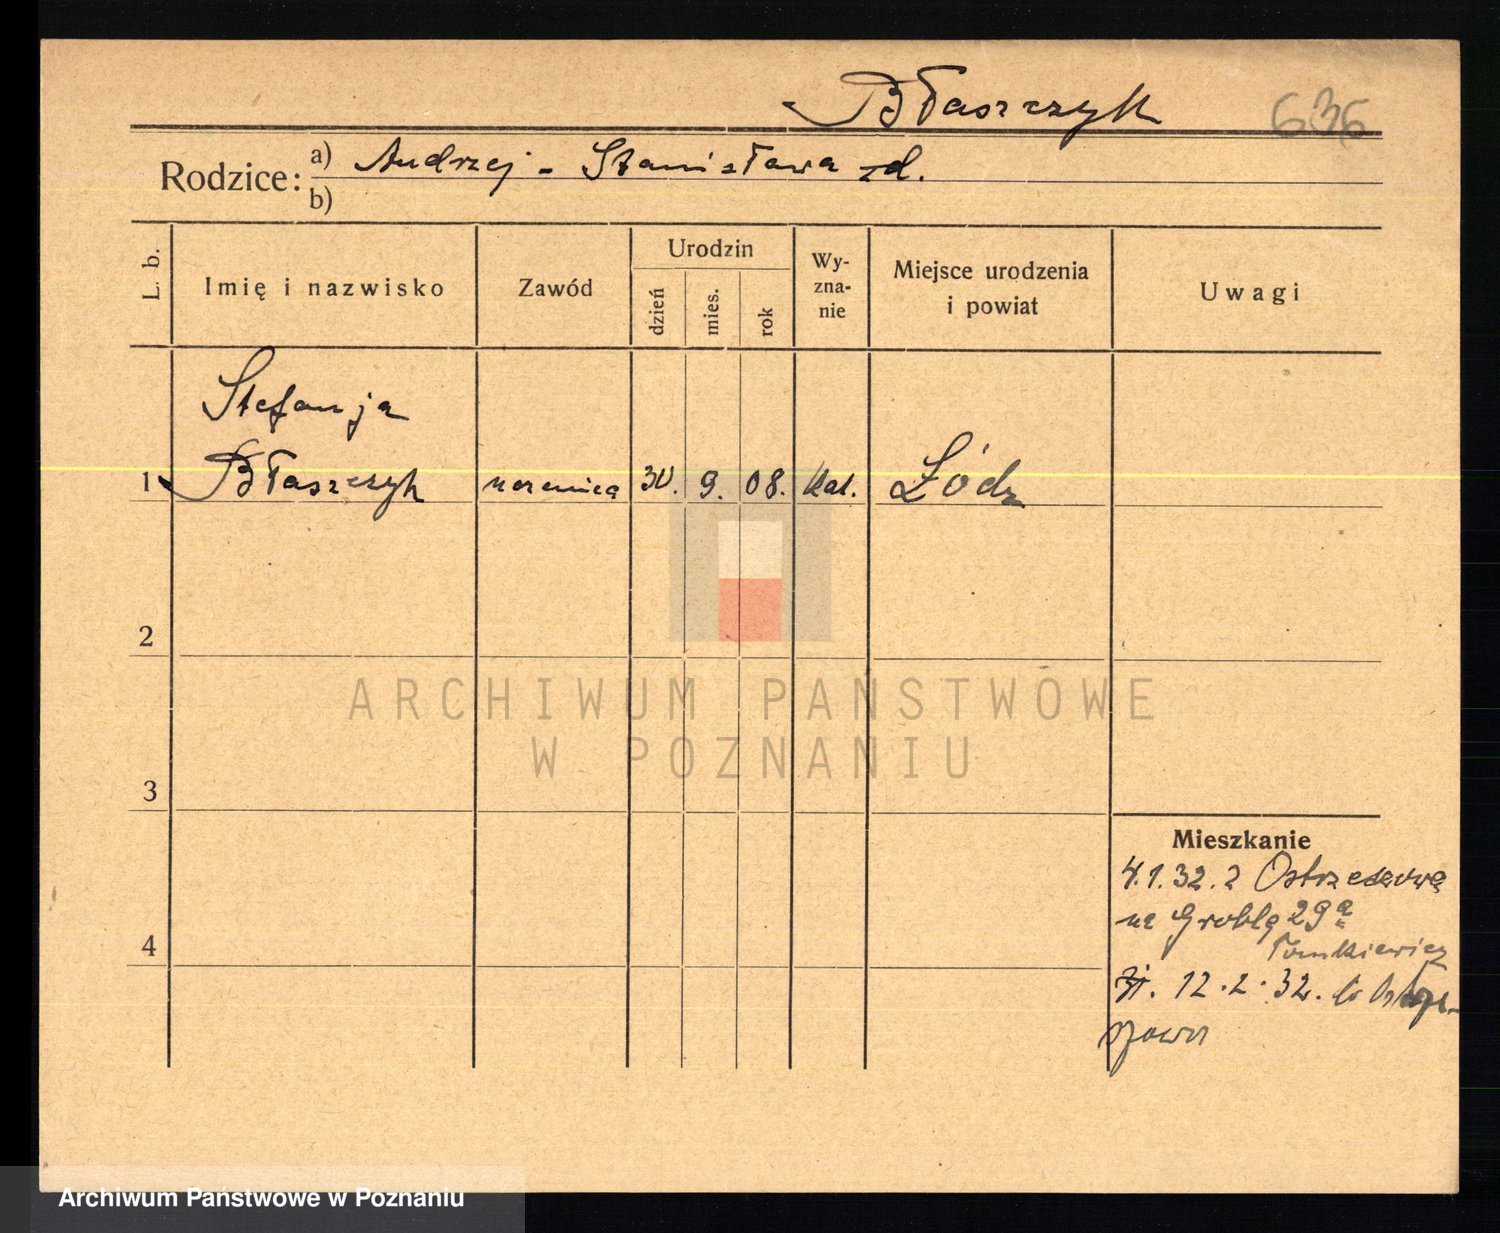 Błaszczyk 636
Rodzice: a) Andrzej - Stanisława zd.
b)
L. b. Imię i nazwisko Zawód Urodzin dzień mies. rok Wy-zna-nie Miejsce urodzenia i powiat Uwagi
Stefanja
1 Błaszczyk uczennica 30. 9. 08. kat. Łódz
2
3
4
Mieszkanie
4.1.32. z Ostrzeszowa
na Groblą 29a
Tomkiewicz
12.2.32. do Ostrze-
szowa
ARCHIWUM PAŃSTWOWE
W POZNANIU
Archiwum Państwowe w Poznaniu